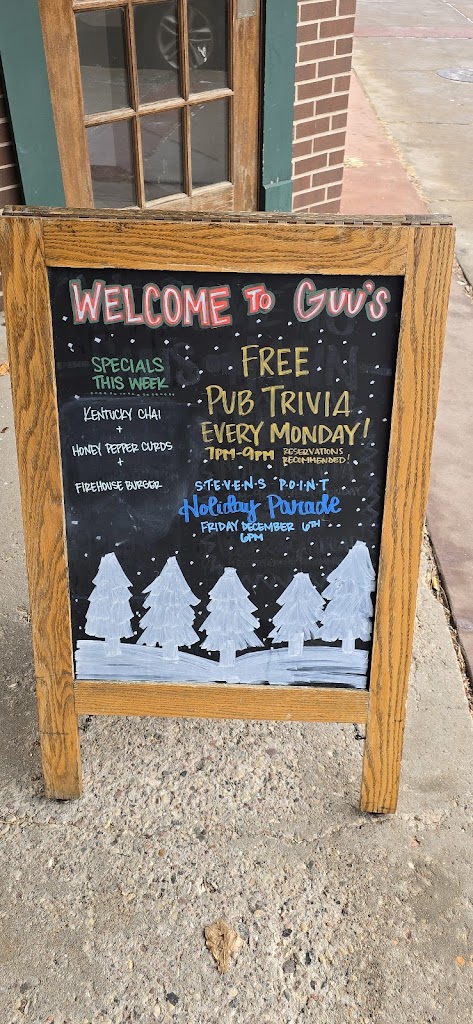 WELCOME TO GUU'S
SPECIALS
THIS WEEK
KENTUCKY CHAI
+
HONEY PEPPER CURDS
+
FIREHOUSE BURGER
FREE
PUB TRIVIA
EVERY MONDAY!
7PM-9PM RESERVATIONS
RECOMMENDED!
STEVENS POINT
Holiday Parade
FRIDAY DECEMBER 6TH
6PM